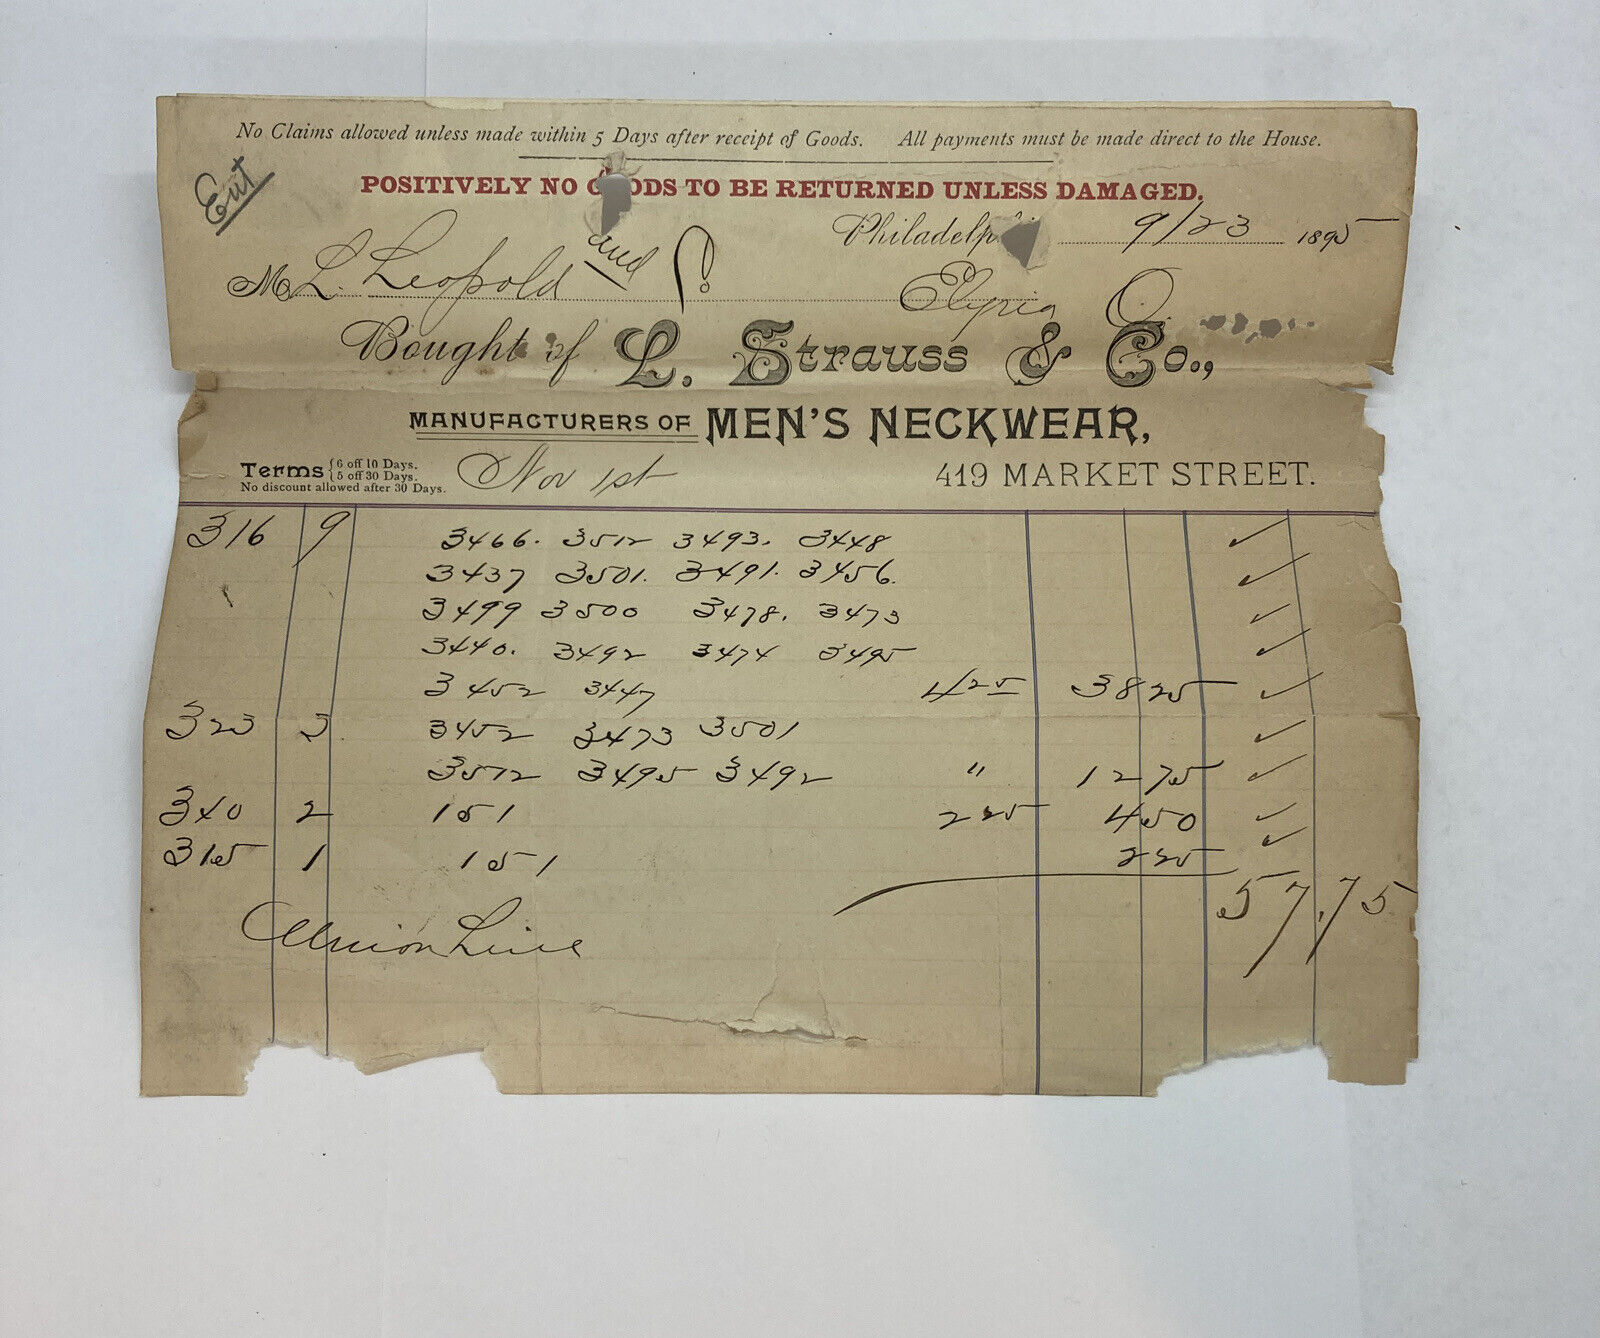 No Claims allowed unless made within 5 Days after receipt of Goods. All payments must be made direct to the House.
Ent
POSITIVELY NO GOODS TO BE RETURNED UNLESS DAMAGED.
Philadelphi 9/23 1895
M L. Leopold and
Elyria O.
Bought of L. Strauss & Co.,
MANUFACTURERS OF MEN'S NECKWEAR,
Terms { 6 off 10 Days.
5 off 30 Days.
No discount allowed after 30 Days.
Nov 1st
419 MARKET STREET.
316 9 3466. 3512 3493. 3448 ✓
3437 3501. 3491. 3456. ✓
3499 3500 3478. 3473 ✓
3440. 3492 3474 3495 ✓
3452 3447 425 3825 ✓
323 3 3452 3473 3501 ✓
3512 3495 3492 " 1275 ✓
340 2 151 225 450 ✓
315 1 151 225 ✓
57.75
Union Line